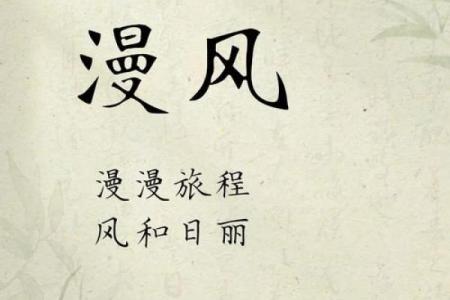 漫风
漫漫旅程
风和日丽